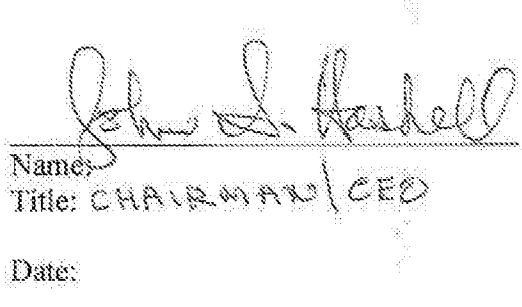 John S. Haskell
Name:
Title: CHAIRMAN / CEO
Date: